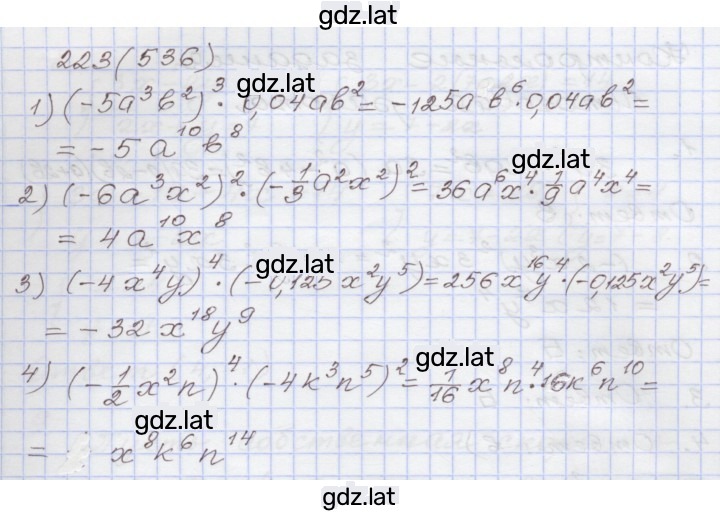 gdz.lat
223(536)
gdz.lat
1) (-5a³b²)³·0,04ab²= -125a b⁶·0,04ab²=
= -5a¹⁰b⁸
gdz.lat
2) (-6a³x²)²·(-1/3a²x²)²=36a⁶x⁴·1/9a⁴x⁴=
= 4a¹⁰x⁸
gdz.lat
3) (-4x⁴y)⁴·(-0,125x²y⁵)=256x¹⁶y⁴·(-0,125x²y⁵)=
= -32x¹⁸y⁹
gdz.lat
4) (-1/2x²n)⁴·(-4k³n⁵)²=1/16x⁸n⁴·16k⁶n¹⁰=
gdz.lat
= x⁸k⁶n¹⁴
gdz.lat